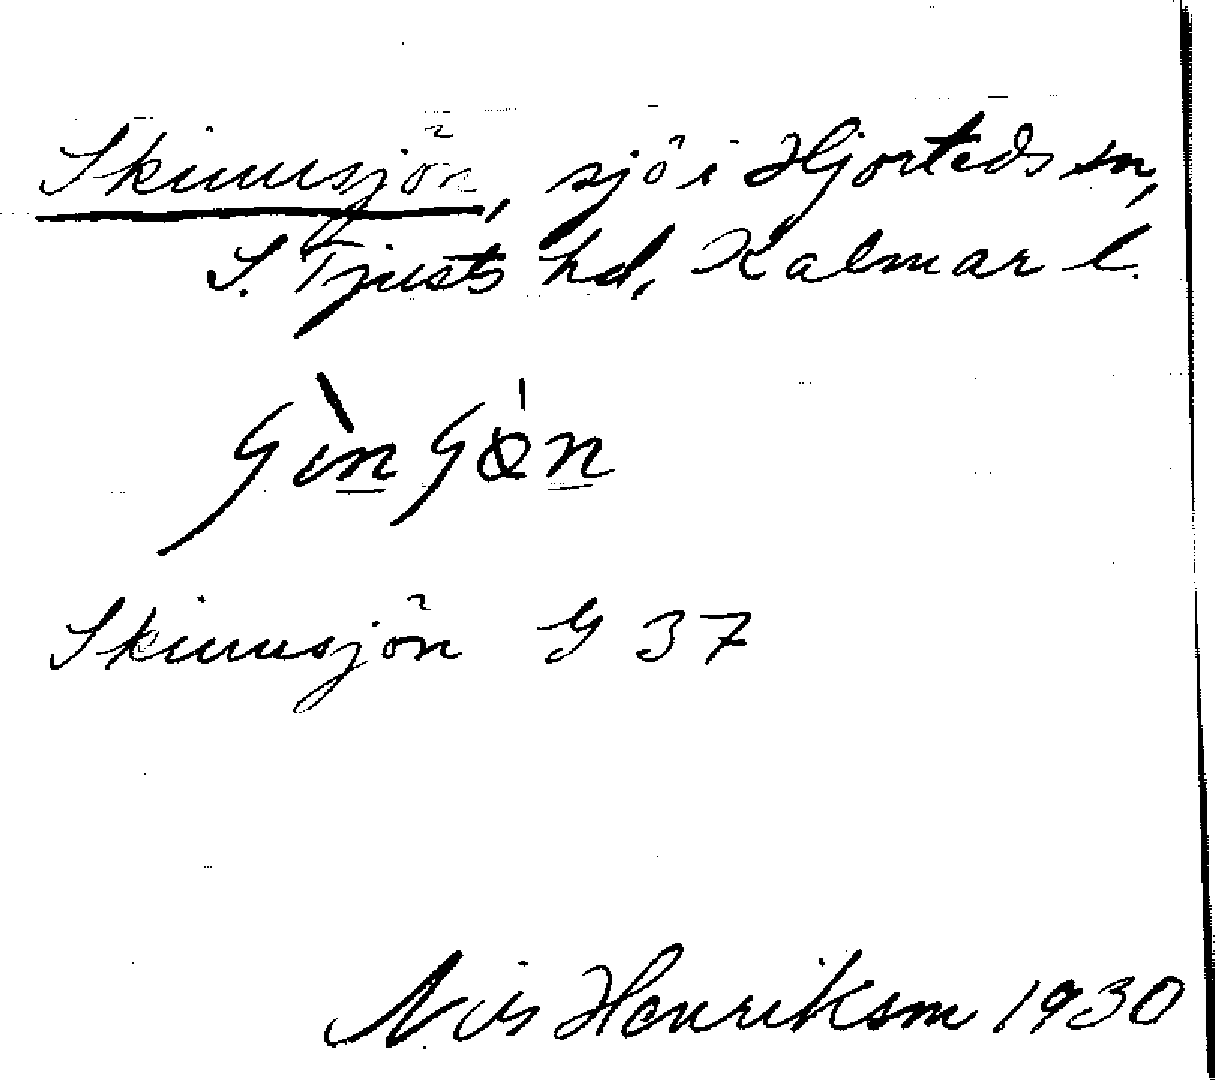 Skinnsjön, sjö i Hjorteds sn,
S. Tjusts hd, Kalmar l.
Skinnsjön G 37
Henrikson 1930